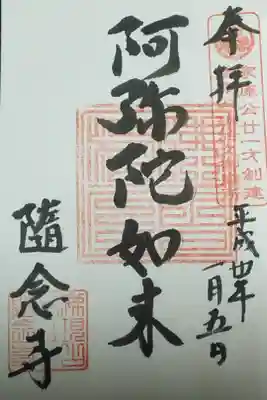 奉拝
家康公廿一才創建
平成廿年
一月五日
阿弥陀如来
隨念寺